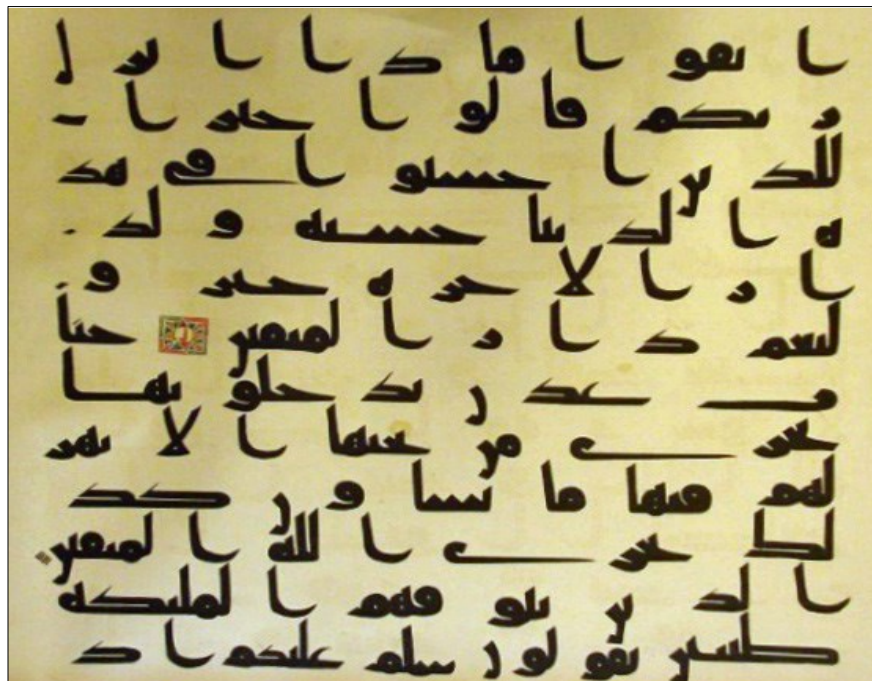 اتقوا ماذا انزل
ربكم قالوا خيرا
للذين احسنوا في هذ
ه الدنيا حسنه ولد
ار الاخره خير و
لنعم دار المتقين جنا
ت عدن يدخلونها
تجري من تحتها الانهر
لهم فيها ما يشاون كذ
لك يجزي الله المتقين
الذين تتوفهم الملئكه
طيبين يقولون سلم عليكم اد